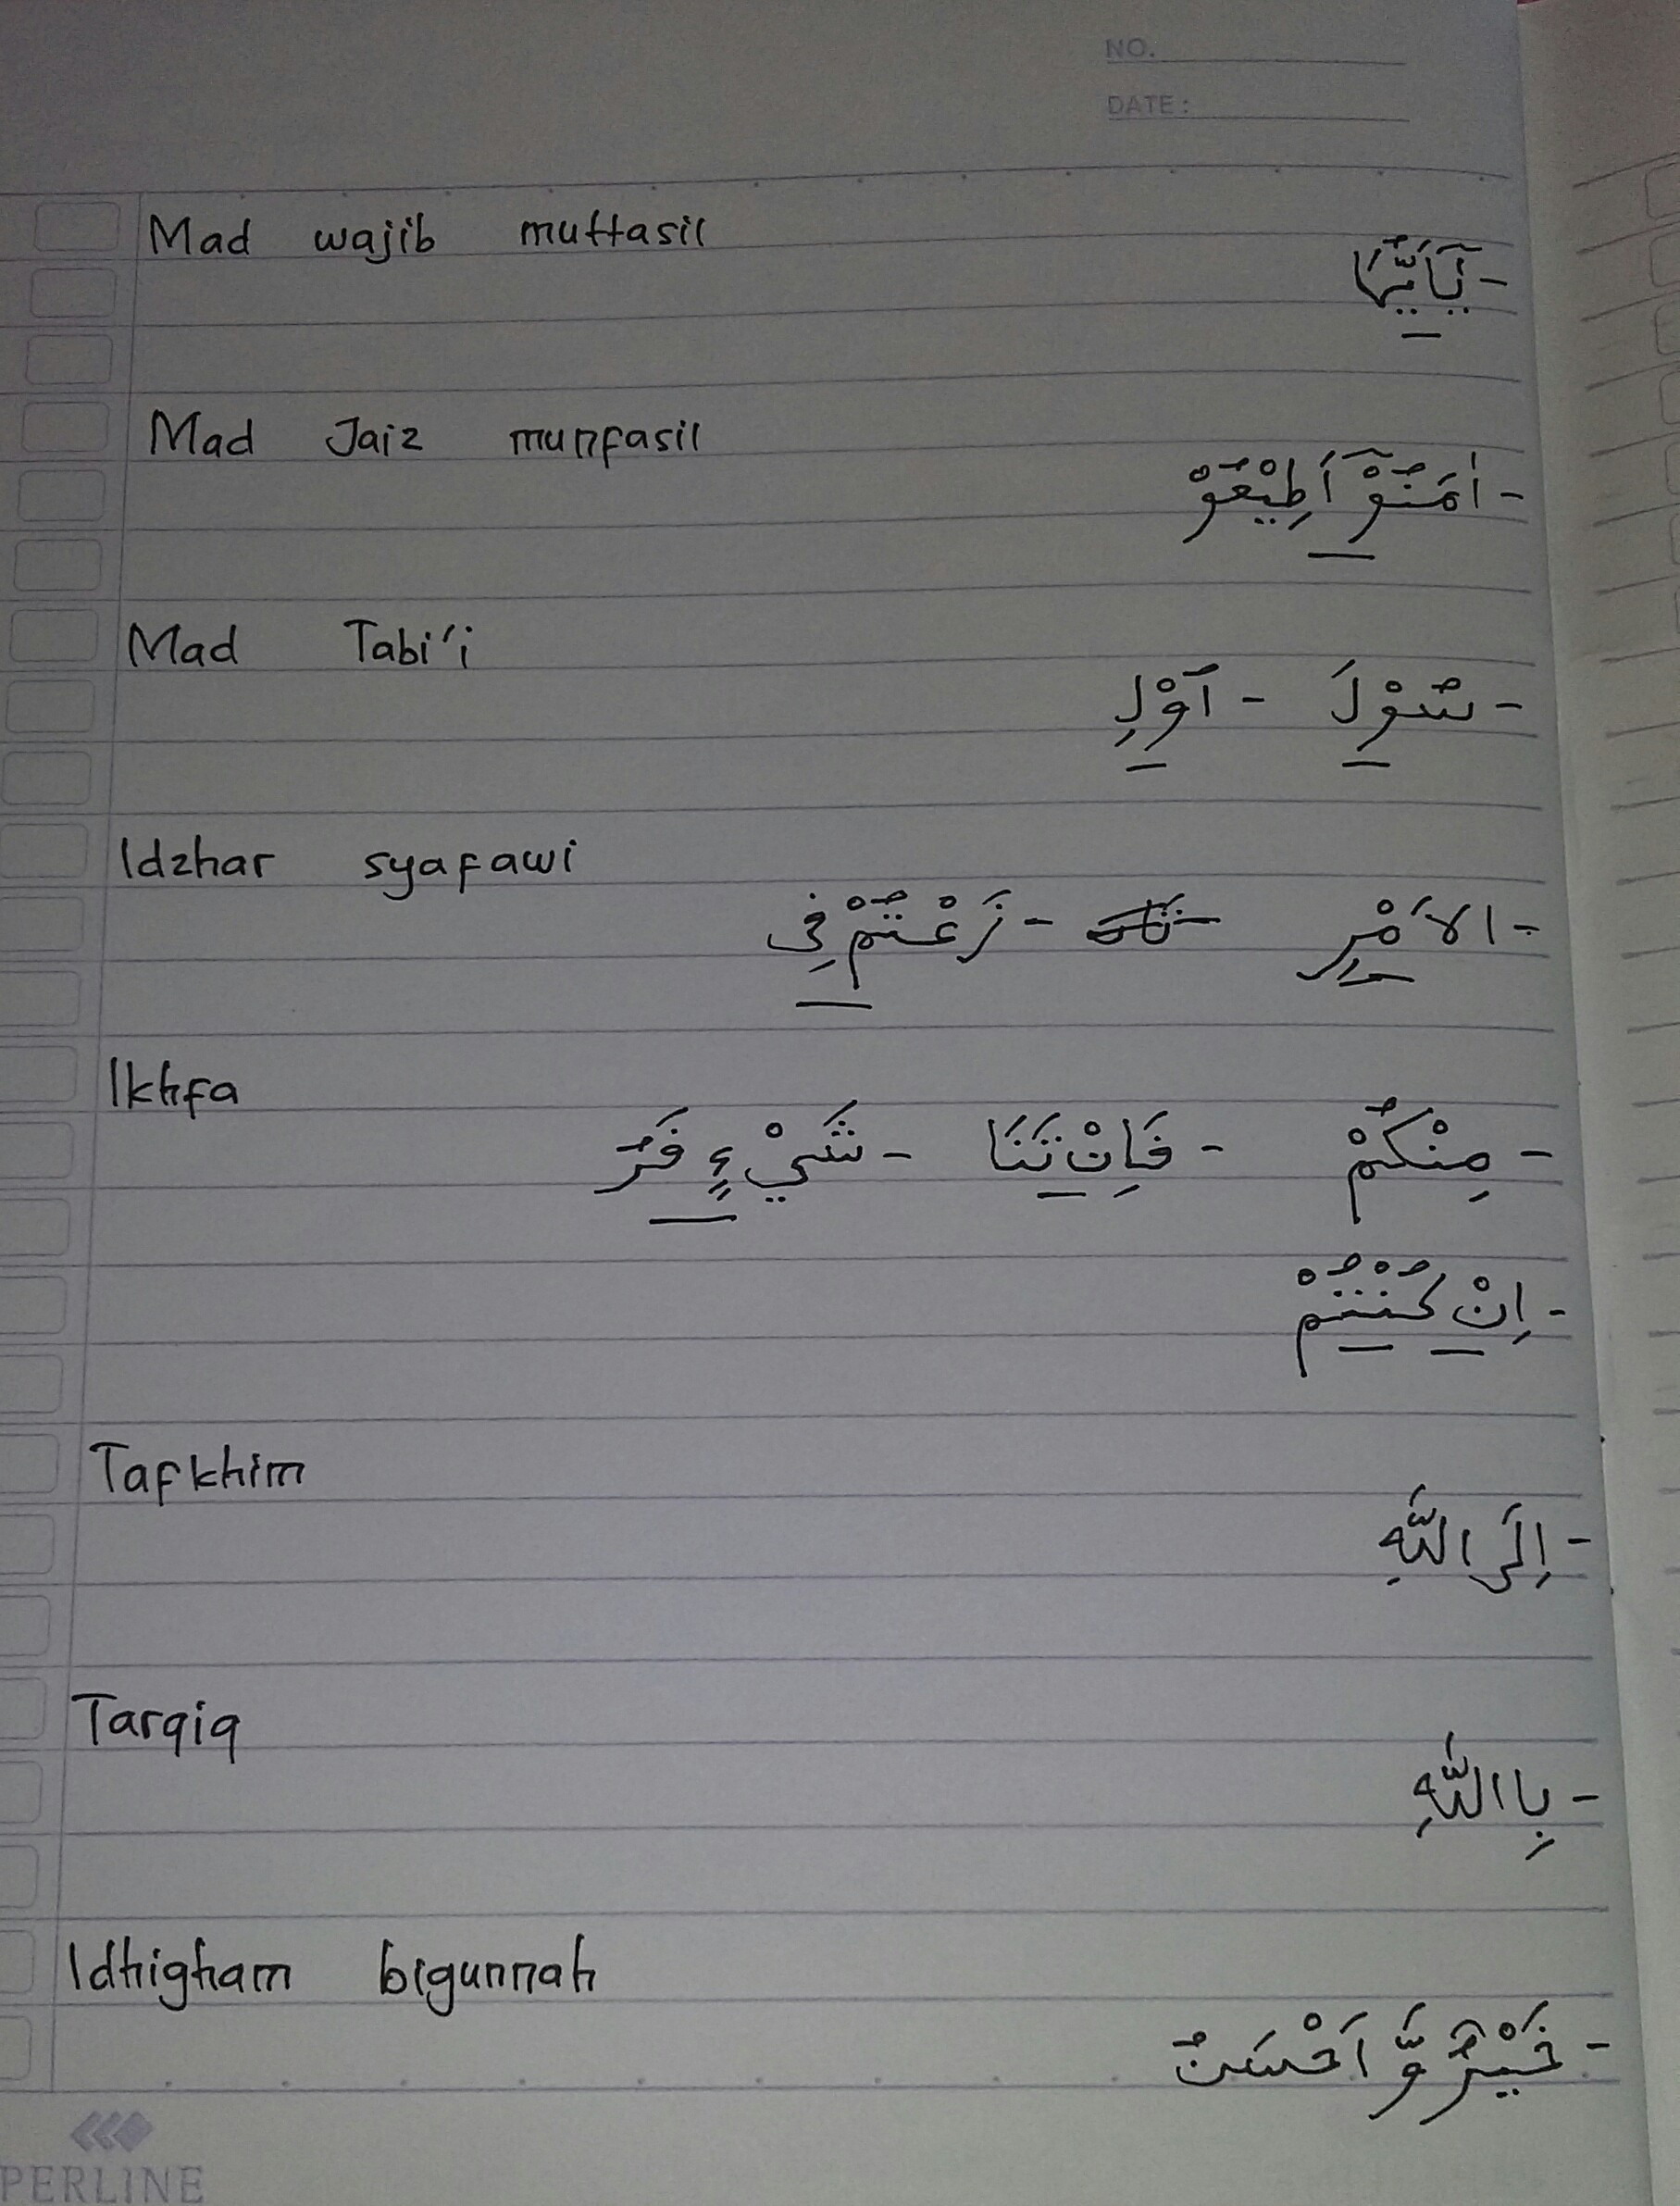 NO.
DATE :
Mad wajib muttasil
- يٰٓاَيُّهَا
Mad Jaiz munfasil
- اٰمَنُوْٓ اَطِيْعُوْ
Mad Tabi'i
- سُوْلَ - اُوْلِ
Idzhar syafawi
- الاَمْرِ - زَعْتُمْ فِى
Ikhfa
- مِنْكُمْ - فَاِنْ تَنَا - شَيْءٍ فَرُ
- اِنْ كُنْتُمْ
Tafkhim
- اِلَى اللّٰهِ
Tarqiq
- بِا اللّٰهِ
Idhigham bigunnah
- خَيْرٌ وَّ اَحْسَنُ
PERLINE